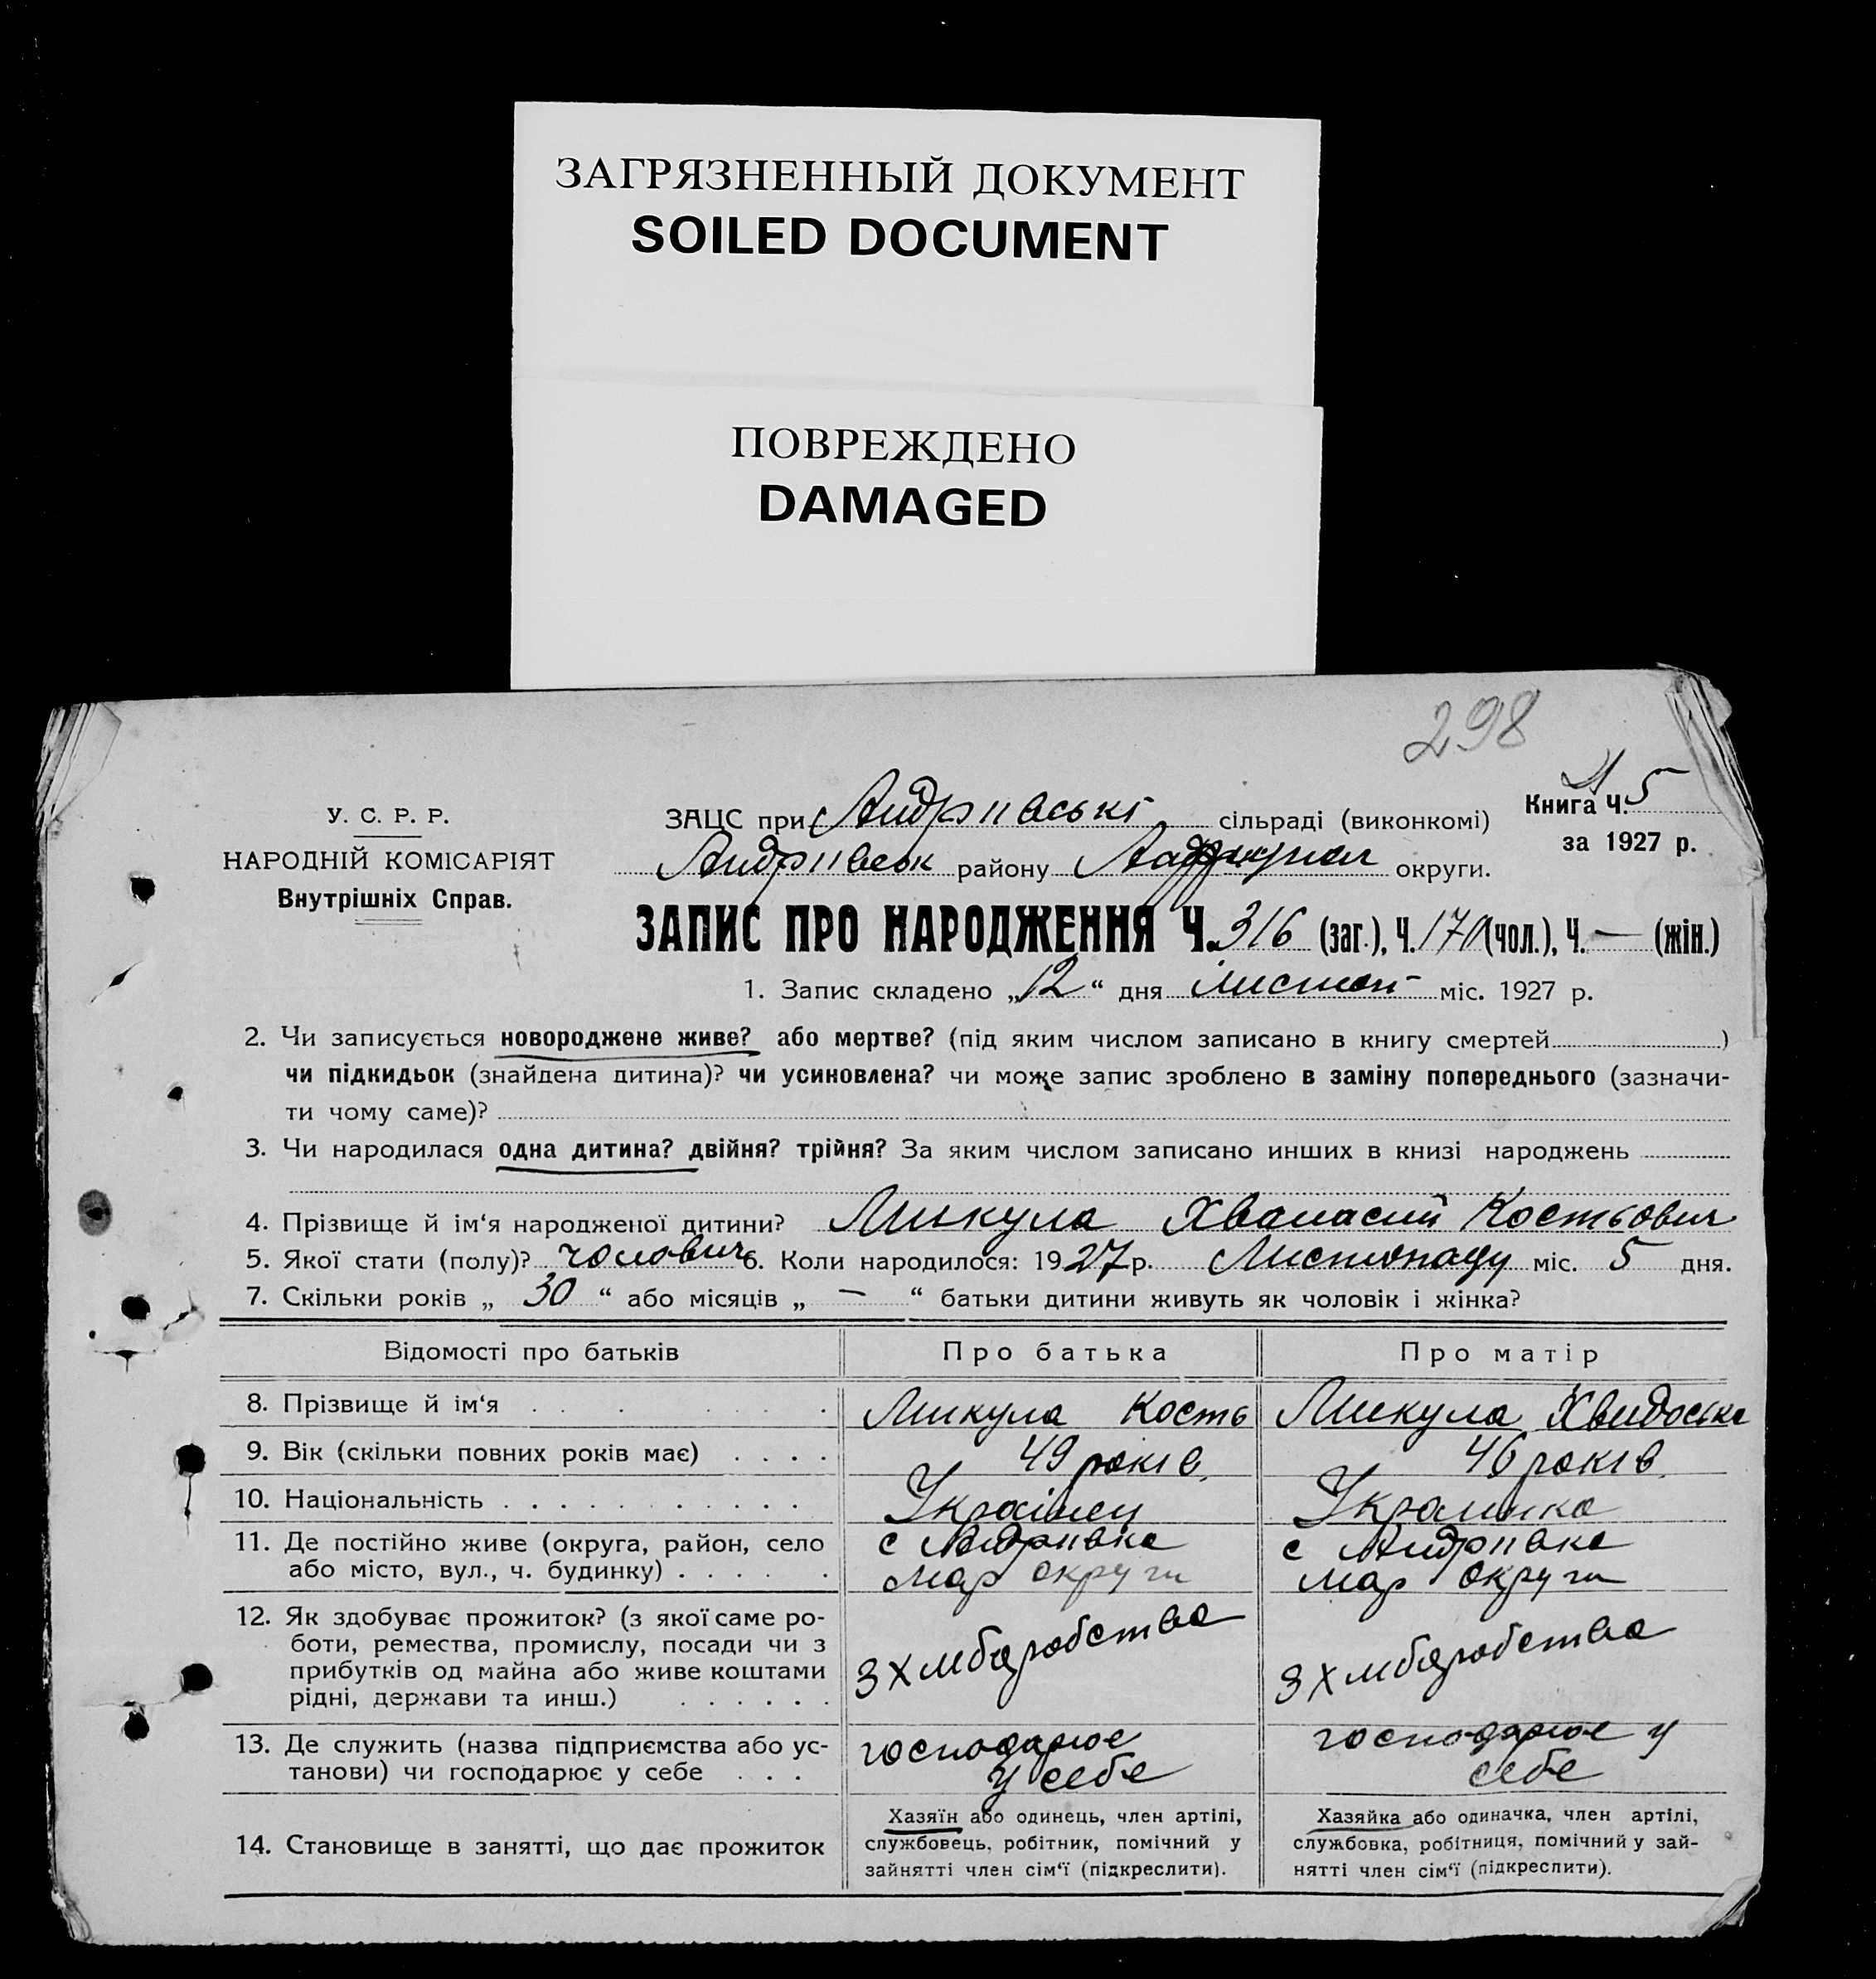 ЗАГРЯЗНЕННЫЙ ДОКУМЕНТ
SOILED DOCUMENT
ПОВРЕЖДЕНО
DAMAGED
298
У. С. Р. Р.
НАРОДНІЙ КОМІСАРІЯТ
Внутрішніх Справ.
ЗАЦС при Андріівські сільраді (виконкомі)
Андріівськ району округи.
Книга Ч. 5
за 1927 р.
ЗАПИС ПРО НАРОДЖЕННЯ Ч. 316 (заг.), Ч. 170 (чол.), Ч. — (жін.)
1. Запис складено „12“ дня Листоп міс. 1927 р.
2. Чи записується новороджене живе? або мертве? (під яким числом записано в книгу смертей )
чи підкидьок (знайдена дитина)? чи усиновлена? чи може запис зроблено в заміну попереднього (зазначи-
ти чому саме)?
3. Чи народилася одна дитина? двійня? трійня? За яким числом записано инших в книзі народжень
4. Прізвище й ім‘я народженої дитини? Микула Хванасий Костьович
5. Якої стати (полу)? чолович 6. Коли народилося: 1927 р. Листопаду міс. 5 дня.
7. Скільки років „ 30 “ або місяців „ — “ батьки дитини живуть як чоловік і жінка?
Відомості про батьків Про батька Про матір
8. Прізвище й ім‘я Микула Кость Микула Хвидоська
9. Вік (скільки повних років має) 49 років. 46 років.
10. Національність Українец Украинка
11. Де постійно живе (округа, район, село с Андріівка с Андріівка
або місто, вул., ч. будинку) мар округи мар округи
12. Як здобуває прожиток? (з якої саме ро-
боти, ремества, промислу, посади чи з
прибутків од майна або живе коштами
рідні, держави та инш.)
З хлібаробства З хлібаробства
13. Де служить (назва підприємства або ус- господарює господарює у
танови) чи господарює у себе у себе себе
14. Становище в занятті, що дає прожиток
Хазяїн або одинець, член артілі,
службовець, робітник, помічний у
зайнятті член сім‘ї (підкреслити).
Хазяйка або одиначка, член артілі,
службовка, робітниця, помічний у зай-
нятті член сім‘ї (підкреслити).